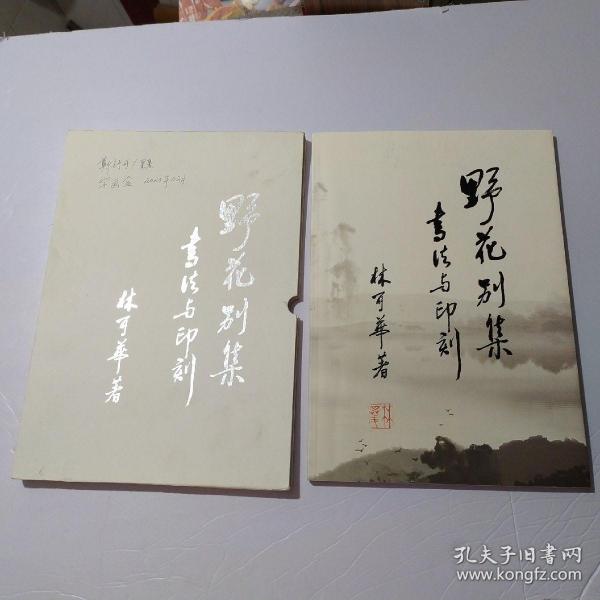 野花别集
书法与印刻
林可華著
野花别集
书法与印刻
林可華著
孔夫子旧书网
www.kongfz.com